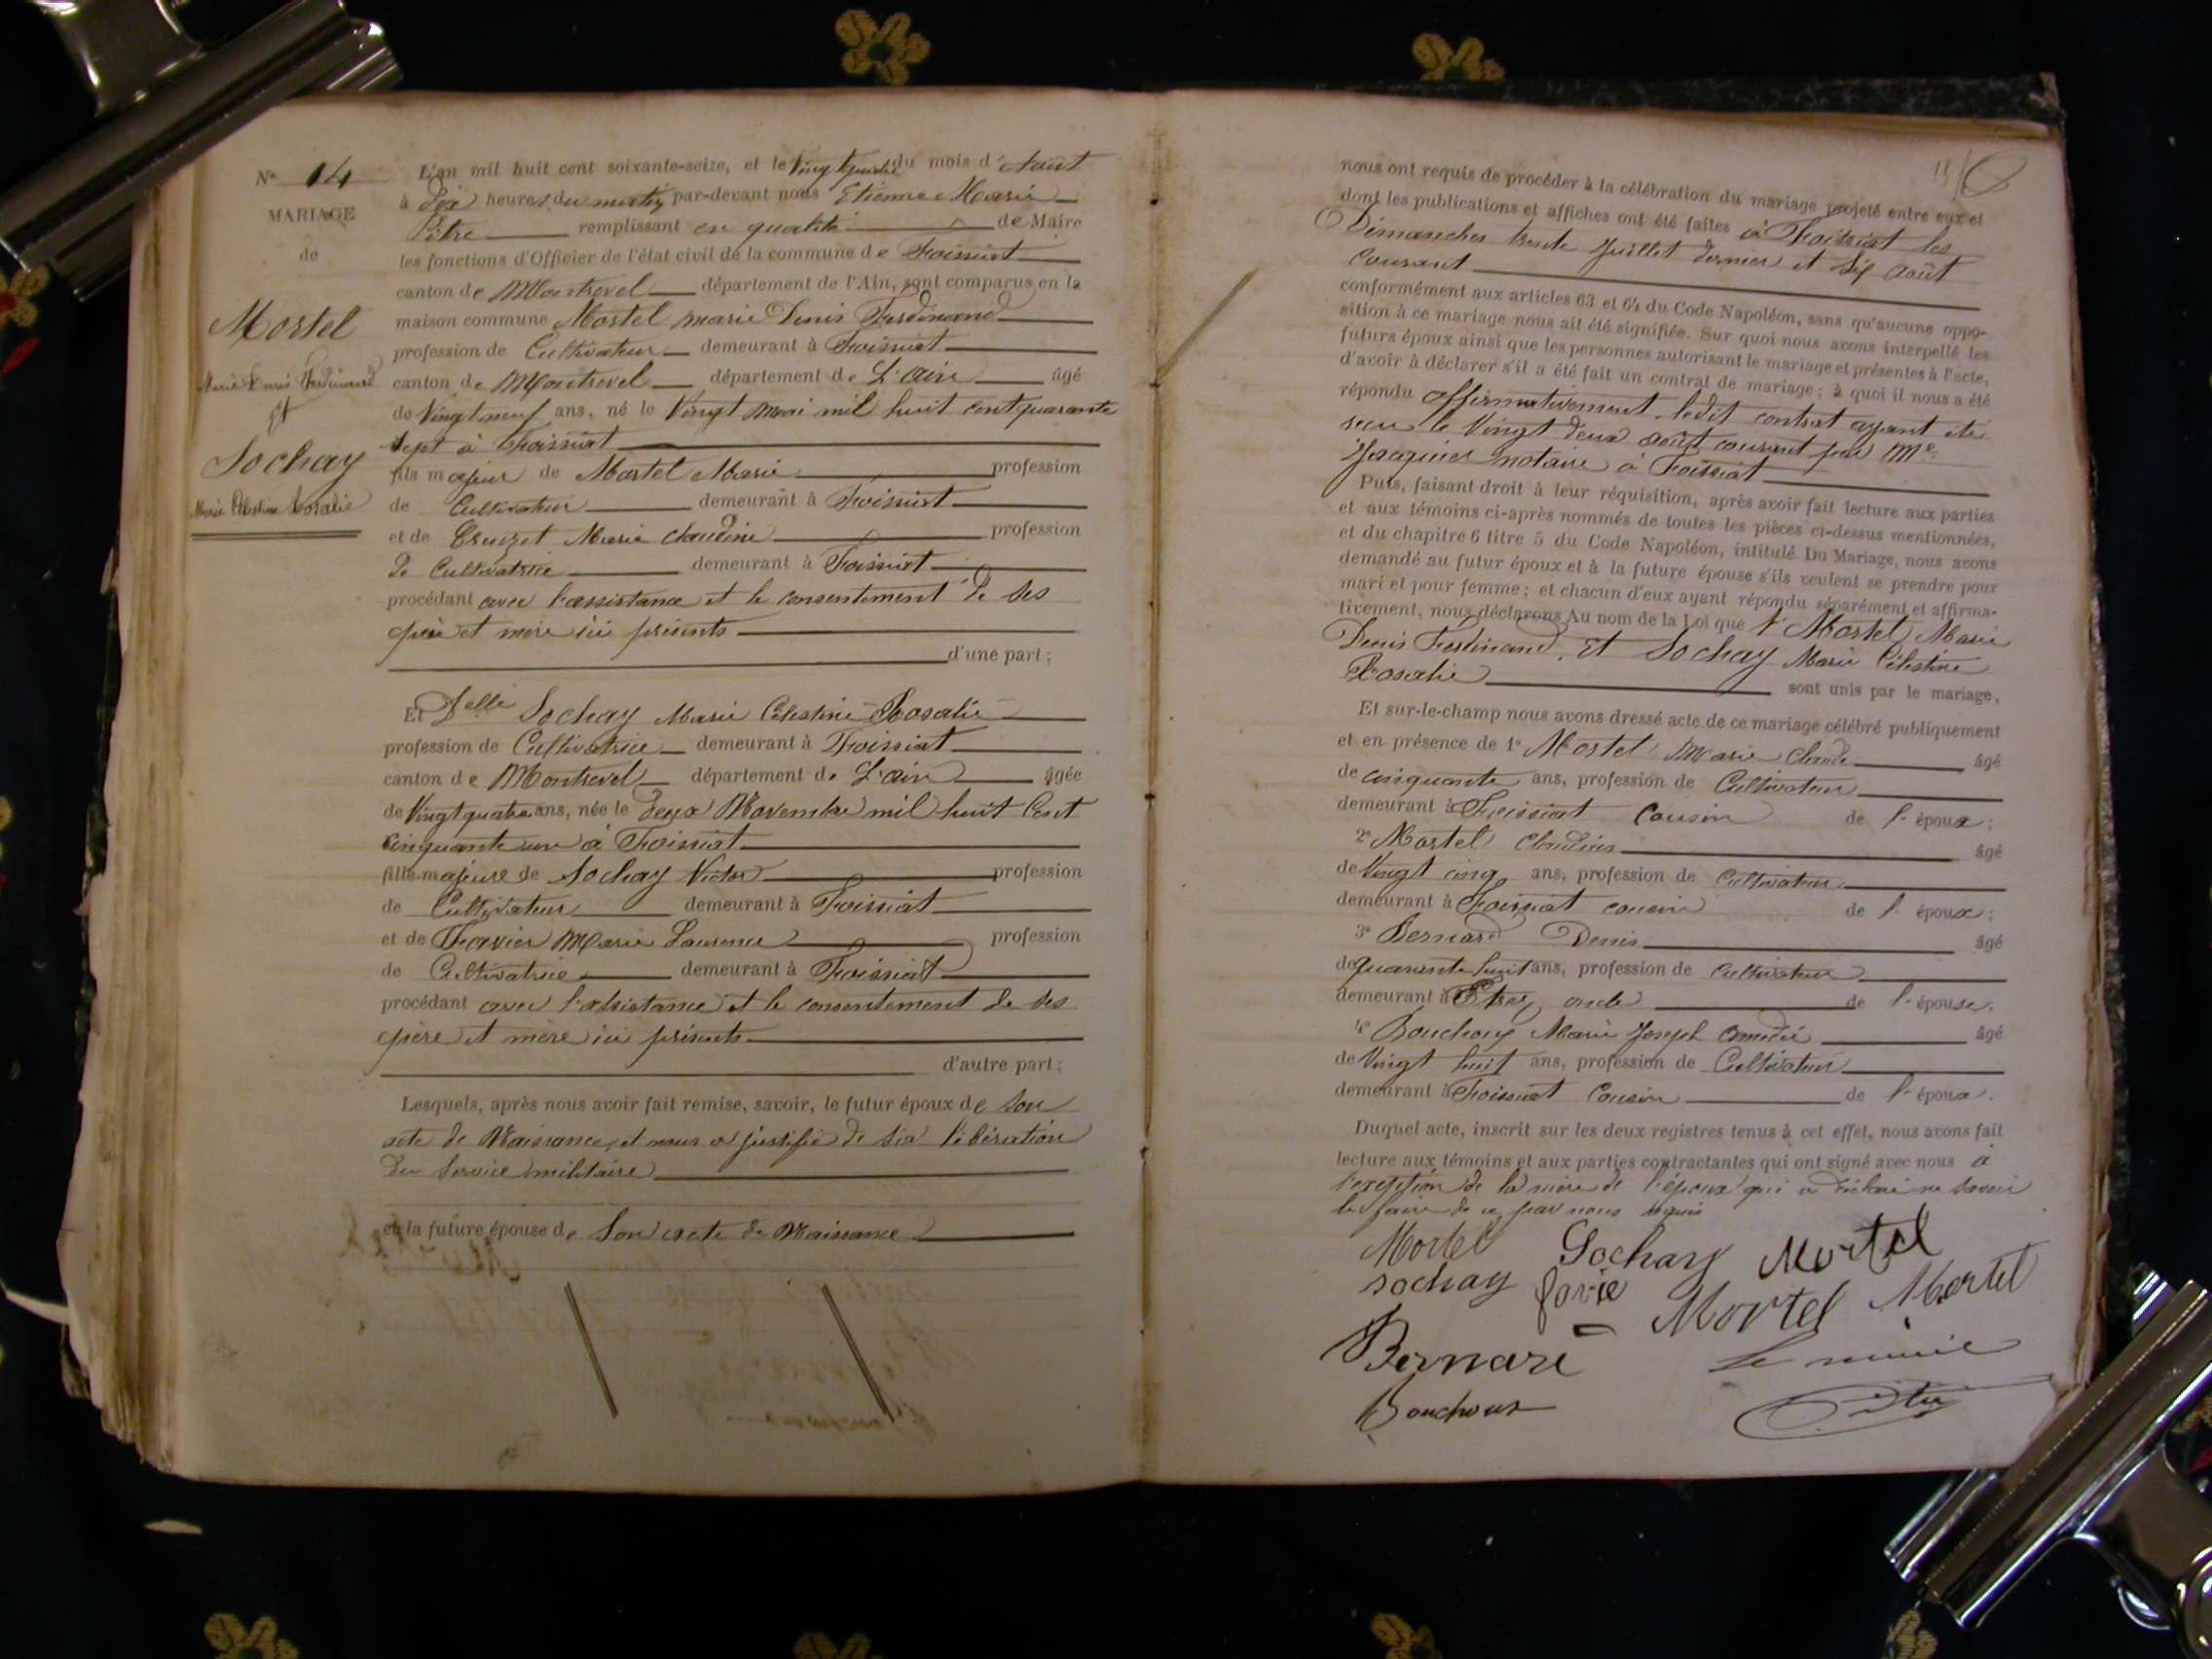 N° 14
MARIAGE
de
Mortel
Marie Denis Ferdinand
Et
Sochay
Marie Célestine Rosalie
L'an mil huit cent soixante-seize, et le Vingt quatre du mois d'Août
à dix heures du matin par-devant nous Etienne Marie
Pitre remplissant en qualité de Maire
les fonctions d'Officier de l'état civil de la commune de Foissiat
canton de Montrevel département de l'Ain, sont comparus en la
maison commune Mortel marie Denis Ferdinand
profession de Cultivateur demeurant à Foissiat
canton de Montrevel département de L'ain âgé
de Vingt neuf ans, né le Vingt mai mil huit cent quarante
sept à Foissiat
fils majeur de Mortel Marie profession
de Cultivateur demeurant à Foissiat
et de Cruzet Marie Claudine profession
de Cultivatrice demeurant à Foissiat
procédant avec l'assistance et le consentement de ses
père et mère ici présents
d'une part;
Et Delle Sochay Marie Célestine Rosalie
profession de Cultivatrice demeurant à Foissiat
canton de Montrevel département de L'ain âgée
de Vingt quatre ans, née le deux Novembre mil huit Cent
cinquante un à Foissiat
fille majeure de Sochay Victor profession
de Cultivateur demeurant à Foissiat
et de Favier Marie Laurence profession
de Cultivatrice demeurant à Foissiat
procédant avec l'assistance et le consentement de ses
père et mère ici présents
d'autre part;
Lesquels, après nous avoir fait remise, savoir, le futur époux de son
acte de Naissance, et nous a justifié de sa libération
du Service militaire
et la future épouse de Son acte de Naissance
nous ont requis de procéder à la célébration du mariage projeté entre eux et
dont les publications et affiches ont été faites à Foissiat les
Dimanches trente Juillet dernier et Six août
courant
conformément aux articles 63 et 64 du Code Napoléon, sans qu'aucune oppo-
sition à ce mariage nous ait été signifiée. Sur quoi nous avons interpellé les
futurs époux ainsi que les personnes autorisant le mariage et présentes à l'acte,
d'avoir à déclarer s'il a été fait un contrat de mariage; à quoi il nous a été
répondu affirmativement, ledit contrat ayant été
recu le Vingt deux août courant par Me
Jacquier notaire à Foissiat
Puis, faisant droit à leur réquisition, après avoir fait lecture aux parties
et aux témoins ci-après nommés de toutes les pièces ci-dessus mentionnées,
et du chapitre 6 titre 5 du Code Napoléon, intitulé Du Mariage, nous avons
demandé au futur époux et à la future épouse s'ils veulent se prendre pour
mari et pour femme; et chacun d'eux ayant répondu séparément et affirma-
tivement, nous déclarons Au nom de la Loi que Mortel Marie
Denis Ferdinand, Et Sochay Marie Célestine
Rosalie sont unis par le mariage,
Et sur-le-champ nous avons dressé acte de ce mariage célébré publiquement
et en présence de 1° Mortel Marie Claude âgé
de cinquante ans, profession de Cultivateur
demeurant à Foissiat Cousin de l'époux;
2° Mortel Claudius âgé
de Vingt cinq ans, profession de Cultivateur
demeurant à Foissiat cousin de l'époux;
3° Bernard Denis âgé
de quarante huit ans, profession de Cultivateur
demeurant à Etrez oncle de l'épouse.
4° Bouchoux Marie Joseph Amédée âgé
de Vingt huit ans, profession de Cultivateur
demeurant à Foissiat Cousin de l'époux.
Duquel acte, inscrit sur les deux registres tenus à cet effet, nous avons fait
lecture aux témoins et aux parties contractantes qui ont signé avec nous à
l'exception de la mère de l'époux qui a déclaré ne savoir
le faire de ce par nous requis
Mortel Sochay Mortel
sochay favie Mortel Mortel
Bernard Le maire
Bouchoux Pitre